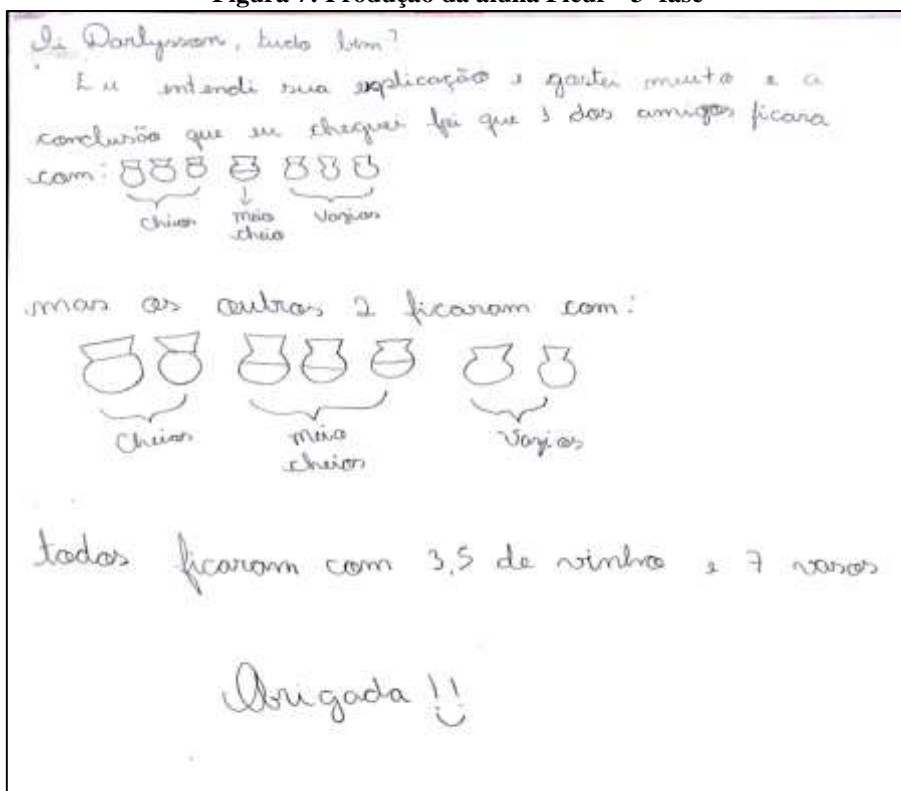 Figura 7: Produção da aluna Fleur – 3ª fase
Oi Darlysson, tudo bem?
Eu entendi sua explicação e gostei muito e a
conclusão que eu cheguei foi que 1 dos amigos ficara
com:
Cheios meio Vazios
cheio
mas os outros 2 ficaram com:
Cheios meio Vazios
cheios
todos ficaram com 3,5 de vinho e 7 vasos
Obrigada !!